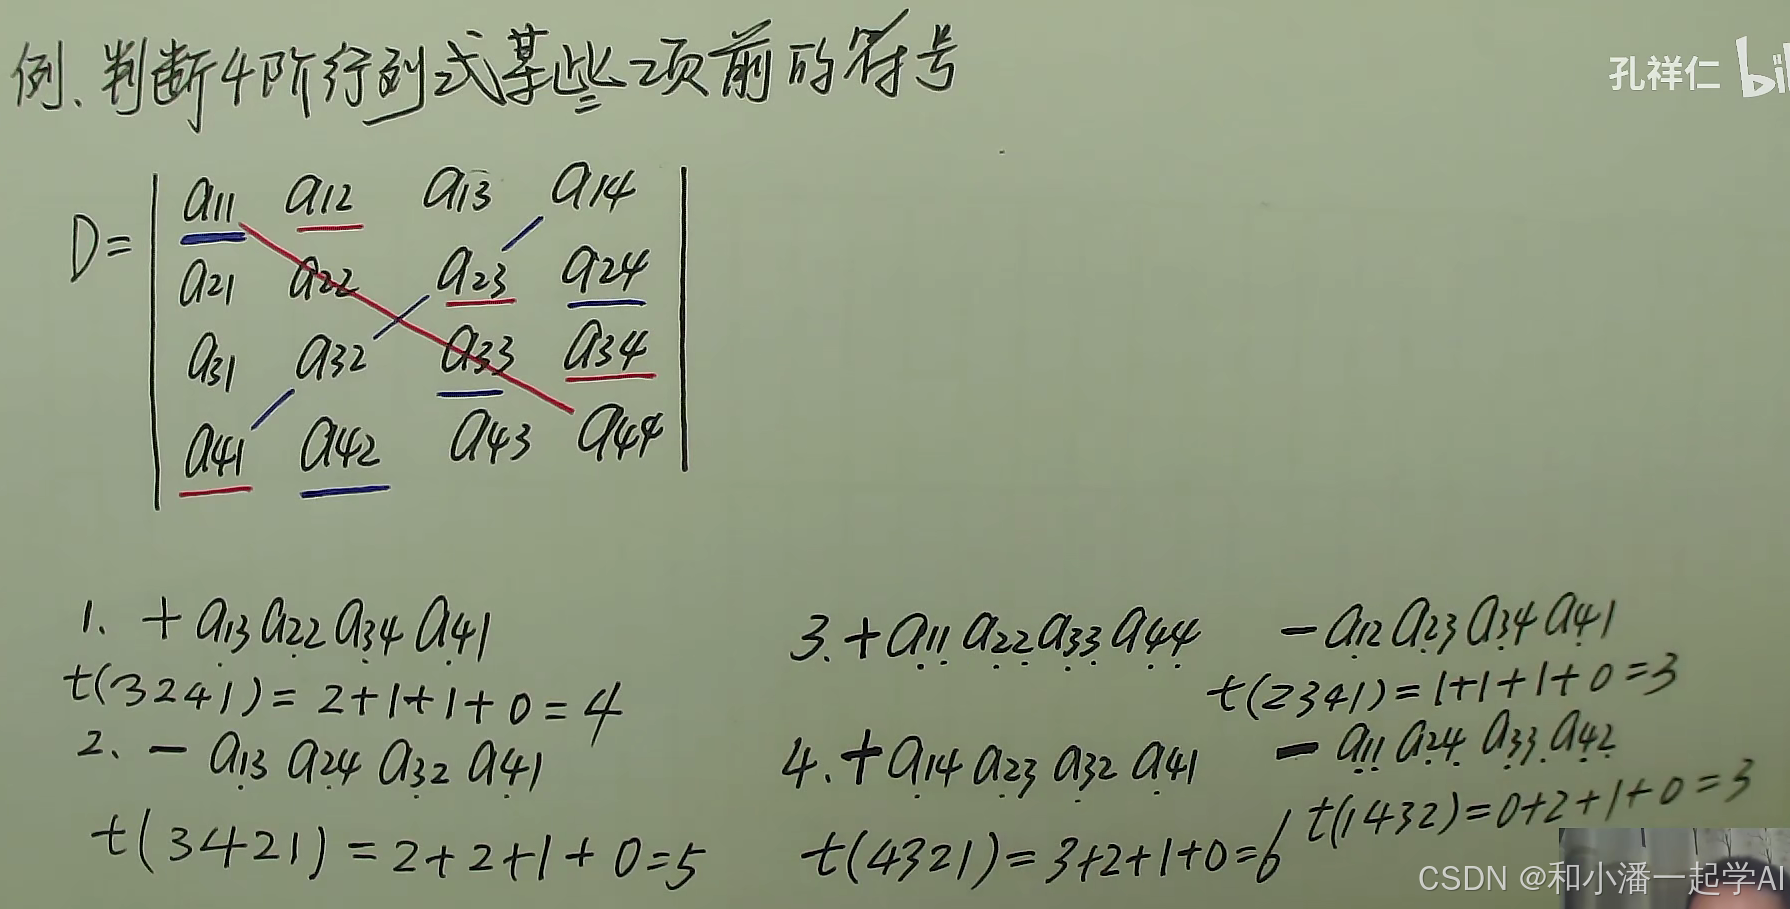 例、判断4阶行列式某些项前的符号
孔祥仁 bi
D=
a11 a12 a13 a14
a21 a22 a23 a24
a31 a32 a33 a34
a41 a42 a43 a44
1. + a13 a22 a34 a41
t(3241) = 2+1+1+0=4
2、 - a13 a24 a32 a41
t(3421) = 2+2+1+0=5
3. + a11 a22 a33 a44
4. + a14 a23 a32 a41
t(4321) = 3+2+1+0=6
- a12 a23 a34 a41
t(2341) = 1+1+1+0=3
- a11 a24 a33 a42
t(1432) = 0+2+1+0=3
CSDN @和小潘一起学AI